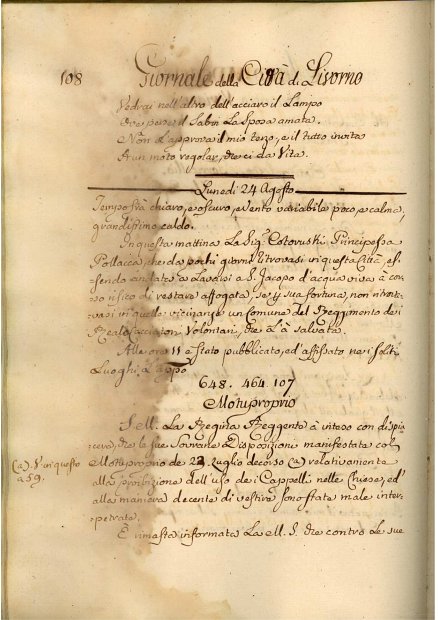 108 Giornale della Città di Livorno
Vedrai nell'altro dell'acciaro il Lampo
Che perse il Sabin La Sposa amata.
Non l'approva il mio terzo, e il tutto invita
A un moto regolar, che ci da Vita.
Lunedi 24 Agosto
Tempo frà chiaro, e oscuro, e Vento variabile poco e calma,
grandissimo caldo.
In questa mattina La Sig.ª Principessa
Pollacca, che da pochi giorni ritrovasi in questa Città, es-
sendo andata a Lavarsi a S. Jacopo d'acqua viva à cor-
so risico di restare affogata, se p sua fortuna, non ritro-
vavasi in quelle vicinanze un Comune del Reggimento dei
Reali Cacciatori Volontari, che L'à salvata.
Alle ore 11 e stato pubblicato, ed affissato nei soliti
Luoghi L'appo
648. 464. 107
Motuproprio
S. M. La Regina Reggente à inteso con dispia-
cere, che le sue Sovrane Disposizioni manifestate col
Motuproprio de 23 Luglio decorso (a) relativamente
alla proibizione dell'uso dei Cappelli nelle Chiese, ed
alla maniera decente di vestire sono state male inter-
petrate.
E rimasta informata La M. S. che contro le sue
(a). V. in questo
a 59.